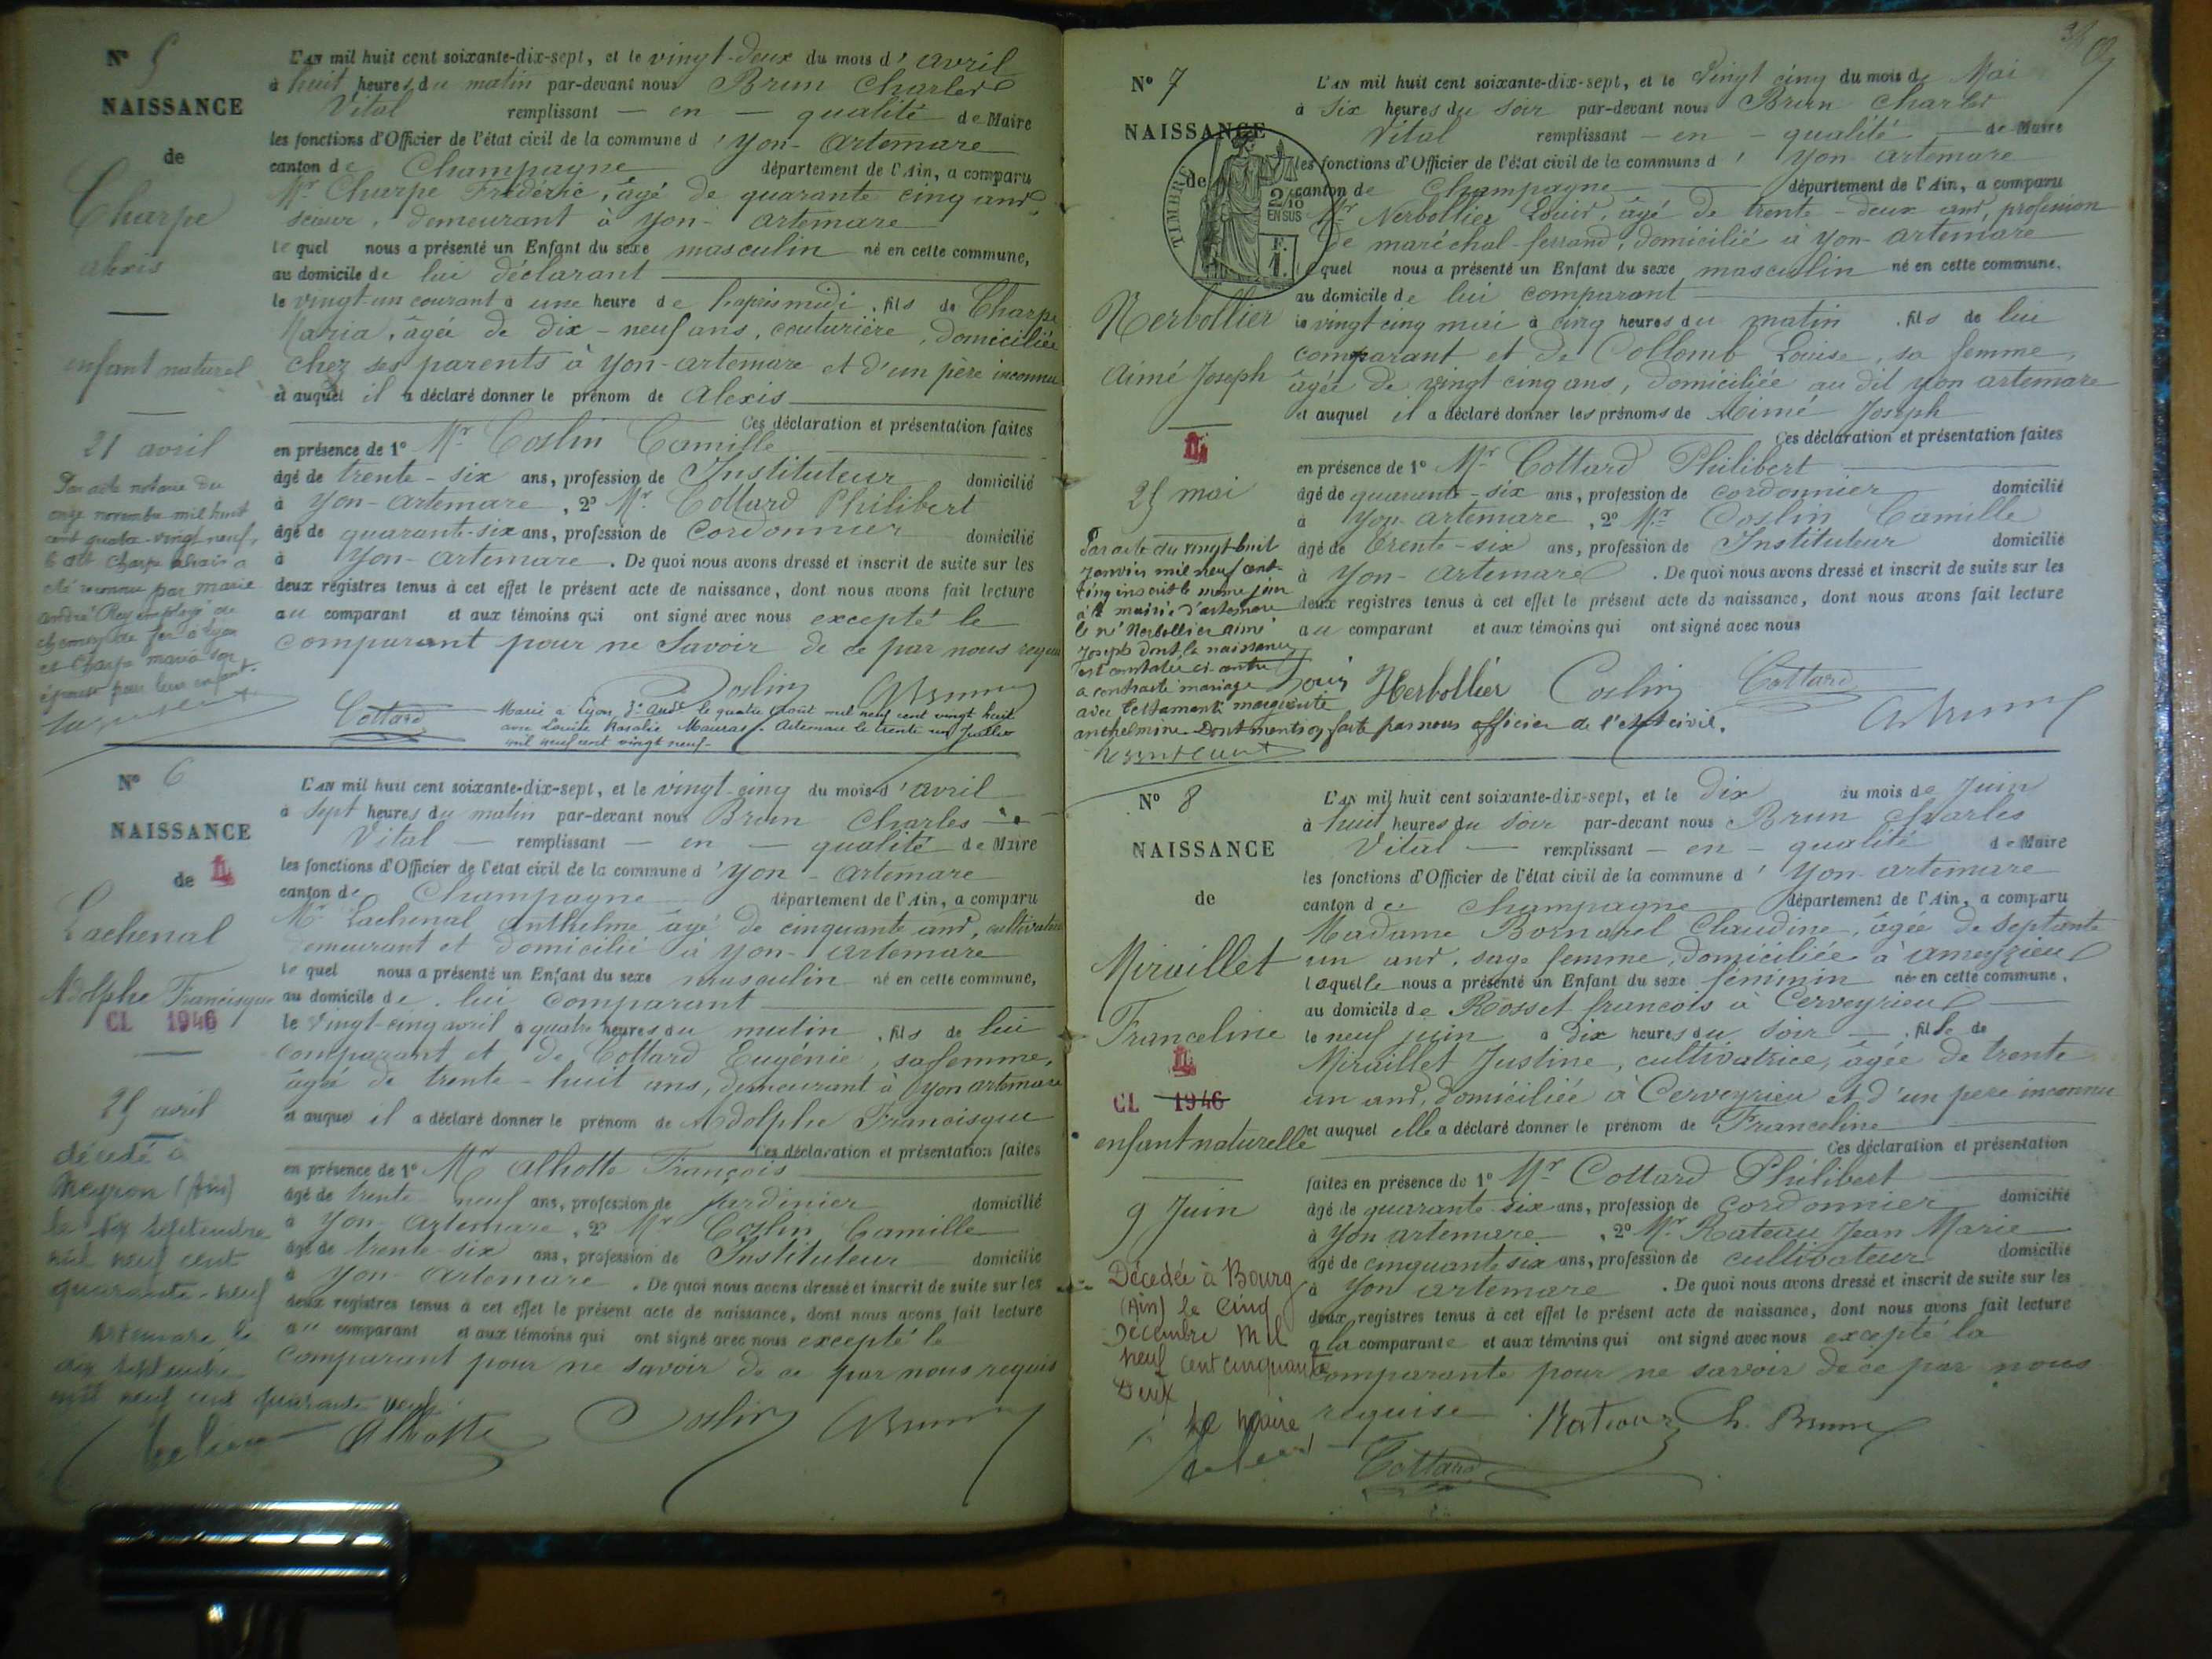 N° 5
NAISSANCE
de
Charpe
alexis
enfant naturel
21 avril
Par acte notarié du
onze novembre mil huit
cent quatre-vingt neuf,
le dit Charpe alexis a
été reconnu par marie
andré Rey employé au
chemin de fer à Lyon
et Charpe maria son
épouse pour leur enfant.
L'AN mil huit cent soixante-dix-sept, et le vingt-deux du mois d'avril
à huit heures du matin par-devant nous Brun Charles
Vital remplissant — en — qualité de Maire
les fonctions d'Officier de l'état civil de la commune d'yon-artemare
canton de Champagne département de l'Ain, a comparu
Mr Charpe Frédéric, âgé de quarante cinq ans,
scieur, demeurant à yon-artemare
lequel nous a présenté un Enfant du sexe masculin né en cette commune,
au domicile de lui déclarant
le vingt-un courant à une heure de l'après midi, fils de Charpe
Maria, âgée de dix-neuf ans, couturière, domiciliée
chez ses parents à yon-artemare et d'un père inconnu
et auquel il a déclaré donner le prénom de Alexis
Ces déclaration et présentation faites
en présence de 1° Mr Coslin Camille
âgé de trente-six ans, profession de Instituteur domicilié
à yon-artemare, 2° Mr Cottard Philibert
âgé de quarante-six ans, profession de Cordonnier domicilié
à yon-artemare. De quoi nous avons dressé et inscrit de suite sur les
deux registres tenus à cet effet le présent acte de naissance, dont nous avons fait lecture
au comparant et aux témoins qui ont signé avec nous excepté le
comparant pour ne savoir de ce par nous requis
Coslin
Cottard
Marié à Lyon 3e arrdt le quatre août mil neuf cent vingt huit
avec Louise Rosalie Mauras. Artemare le trente un Juillet
mil neuf cent vingt neuf
N° 6
NAISSANCE
de
Lachenal
Adolphe Francisque
CL 1946
25 avril
décédé à
Neyron (Ain)
le septembre
mil neuf cent
quarante-neuf
Artemare le
dix septembre
mil neuf cent quarante neuf
L'AN mil huit cent soixante-dix-sept, et le vingt-cinq du mois d'avril
à sept heures du matin par-devant nous Brun Charles
Vital — remplissant — en — qualité de Maire
les fonctions d'Officier de l'état civil de la commune d'yon-artemare
canton de Champagne département de l'Ain, a comparu
Mr Lachenal Anthelme âgé de cinquante ans, cultivateur
demeurant et domicilié à yon-artemare
lequel nous a présenté un Enfant du sexe masculin né en cette commune,
au domicile de lui comparant
le vingt-cinq avril à quatre heures du matin, fils de lui
comparant et de Cottard Eugénie, sa femme,
âgée de trente-huit ans, demeurant à yon artemare
et auquel il a déclaré donner le prénom de Adolphe Francisque
Ces déclaration et présentation faites
en présence de 1° Mr Alhotte François
âgé de trente neuf ans, profession de Jardinier domicilié
à yon-artemare, 2° Mr Coslin Camille
âgé de trente-six ans, profession de Instituteur domicilié
à yon-artemare. De quoi nous avons dressé et inscrit de suite sur les
deux registres tenus à cet effet le présent acte de naissance, dont nous avons fait lecture
au comparant et aux témoins qui ont signé avec nous excepté le
comparant pour ne savoir de ce par nous requis
Alhotte Coslin
N° 7
NAISSANCE
de
TIMBRE
2/10
EN SUS
F.
1.
Nerbollier
Aimé Joseph
25 mai
Par acte du vingt huit
janvier mil neuf cent
cinq inscrit le même jour
à la mairie d'artemare
le né Nerbollier aimé
Joseph dont la naissance
est constatée ci-contre
a contracté mariage
avec marguerite
anthelmine. Dont mention faite par nous officier de l'état civil.
L'AN mil huit cent soixante-dix-sept, et le vingt cinq du mois de Mai
à six heures du soir par-devant nous Brun Charles
Vital remplissant — en — qualité — de Maire
les fonctions d'Officier de l'état civil de la commune d'yon-artemare
canton de Champagne département de l'Ain, a comparu
Mr Nerbollier Louis, âgé de trente-deux ans, profession
de maréchal-ferrand, domicilié à yon-artemare
lequel nous a présenté un Enfant du sexe masculin né en cette commune,
au domicile de lui comparant
le vingt cinq mai à cinq heures du matin, fils de lui
comparant et de Collomb Louise, sa femme,
âgée de vingt cinq ans, domiciliée au dit yon artemare
et auquel il a déclaré donner les prénoms de Aimé Joseph
Ces déclaration et présentation faites
en présence de 1° Mr Cottard Philibert
âgé de quarante-six ans, profession de cordonnier domicilié
à yon-artemare, 2° Mr Coslin Camille
âgé de trente-six ans, profession de Instituteur domicilié
à yon-artemare. De quoi nous avons dressé et inscrit de suite sur les
deux registres tenus à cet effet le présent acte de naissance, dont nous avons fait lecture
au comparant et aux témoins qui ont signé avec nous
Louis Herbollier Coslin Cottard
N° 8
NAISSANCE
de
Miraillet
Franceline
CL 1946
enfant naturelle
9 Juin
Décédée à Bourg
(Ain) le cinq
Décembre mil
neuf cent cinquante
Deux
Le Maire
L'AN mil huit cent soixante-dix-sept, et le dix du mois de Juin
à huit heures du soir par-devant nous Brun Charles
Vital — remplissant — en — qualité de Maire
les fonctions d'Officier de l'état civil de la commune d'yon-artemare
canton de Champagne département de l'Ain, a comparu
Madame Bornarel Claudine, âgée de septante
un ans, sage femme, domiciliée à ameyzieu
laquelle nous a présenté un Enfant du sexe féminin né en cette commune,
au domicile de Rosset francois à Cerveyrieu
le neuf juin à dix heures du soir —, fille de
Miraillet Justine, cultivatrice, âgée de trente
un ans, domiciliée à Cerveyrieu et d'un père inconnu
et auquel elle a déclaré donner le prénom de Franceline
Ces déclaration et présentation
faites en présence de 1° Mr Cottard Philibert
âgé de quarante-six ans, profession de cordonnier domicilié
à yon artemare, 2° Mr Rateau Jean Marie
âgé de cinquante six ans, profession de cultivateur domicilié
à yon artemare. De quoi nous avons dressé et inscrit de suite sur les
deux registres tenus à cet effet le présent acte de naissance, dont nous avons fait lecture
a la comparante et aux témoins qui ont signé avec nous excepté la
comparante pour ne savoir de ce par nous
requise
Ch. Brun
Cottard